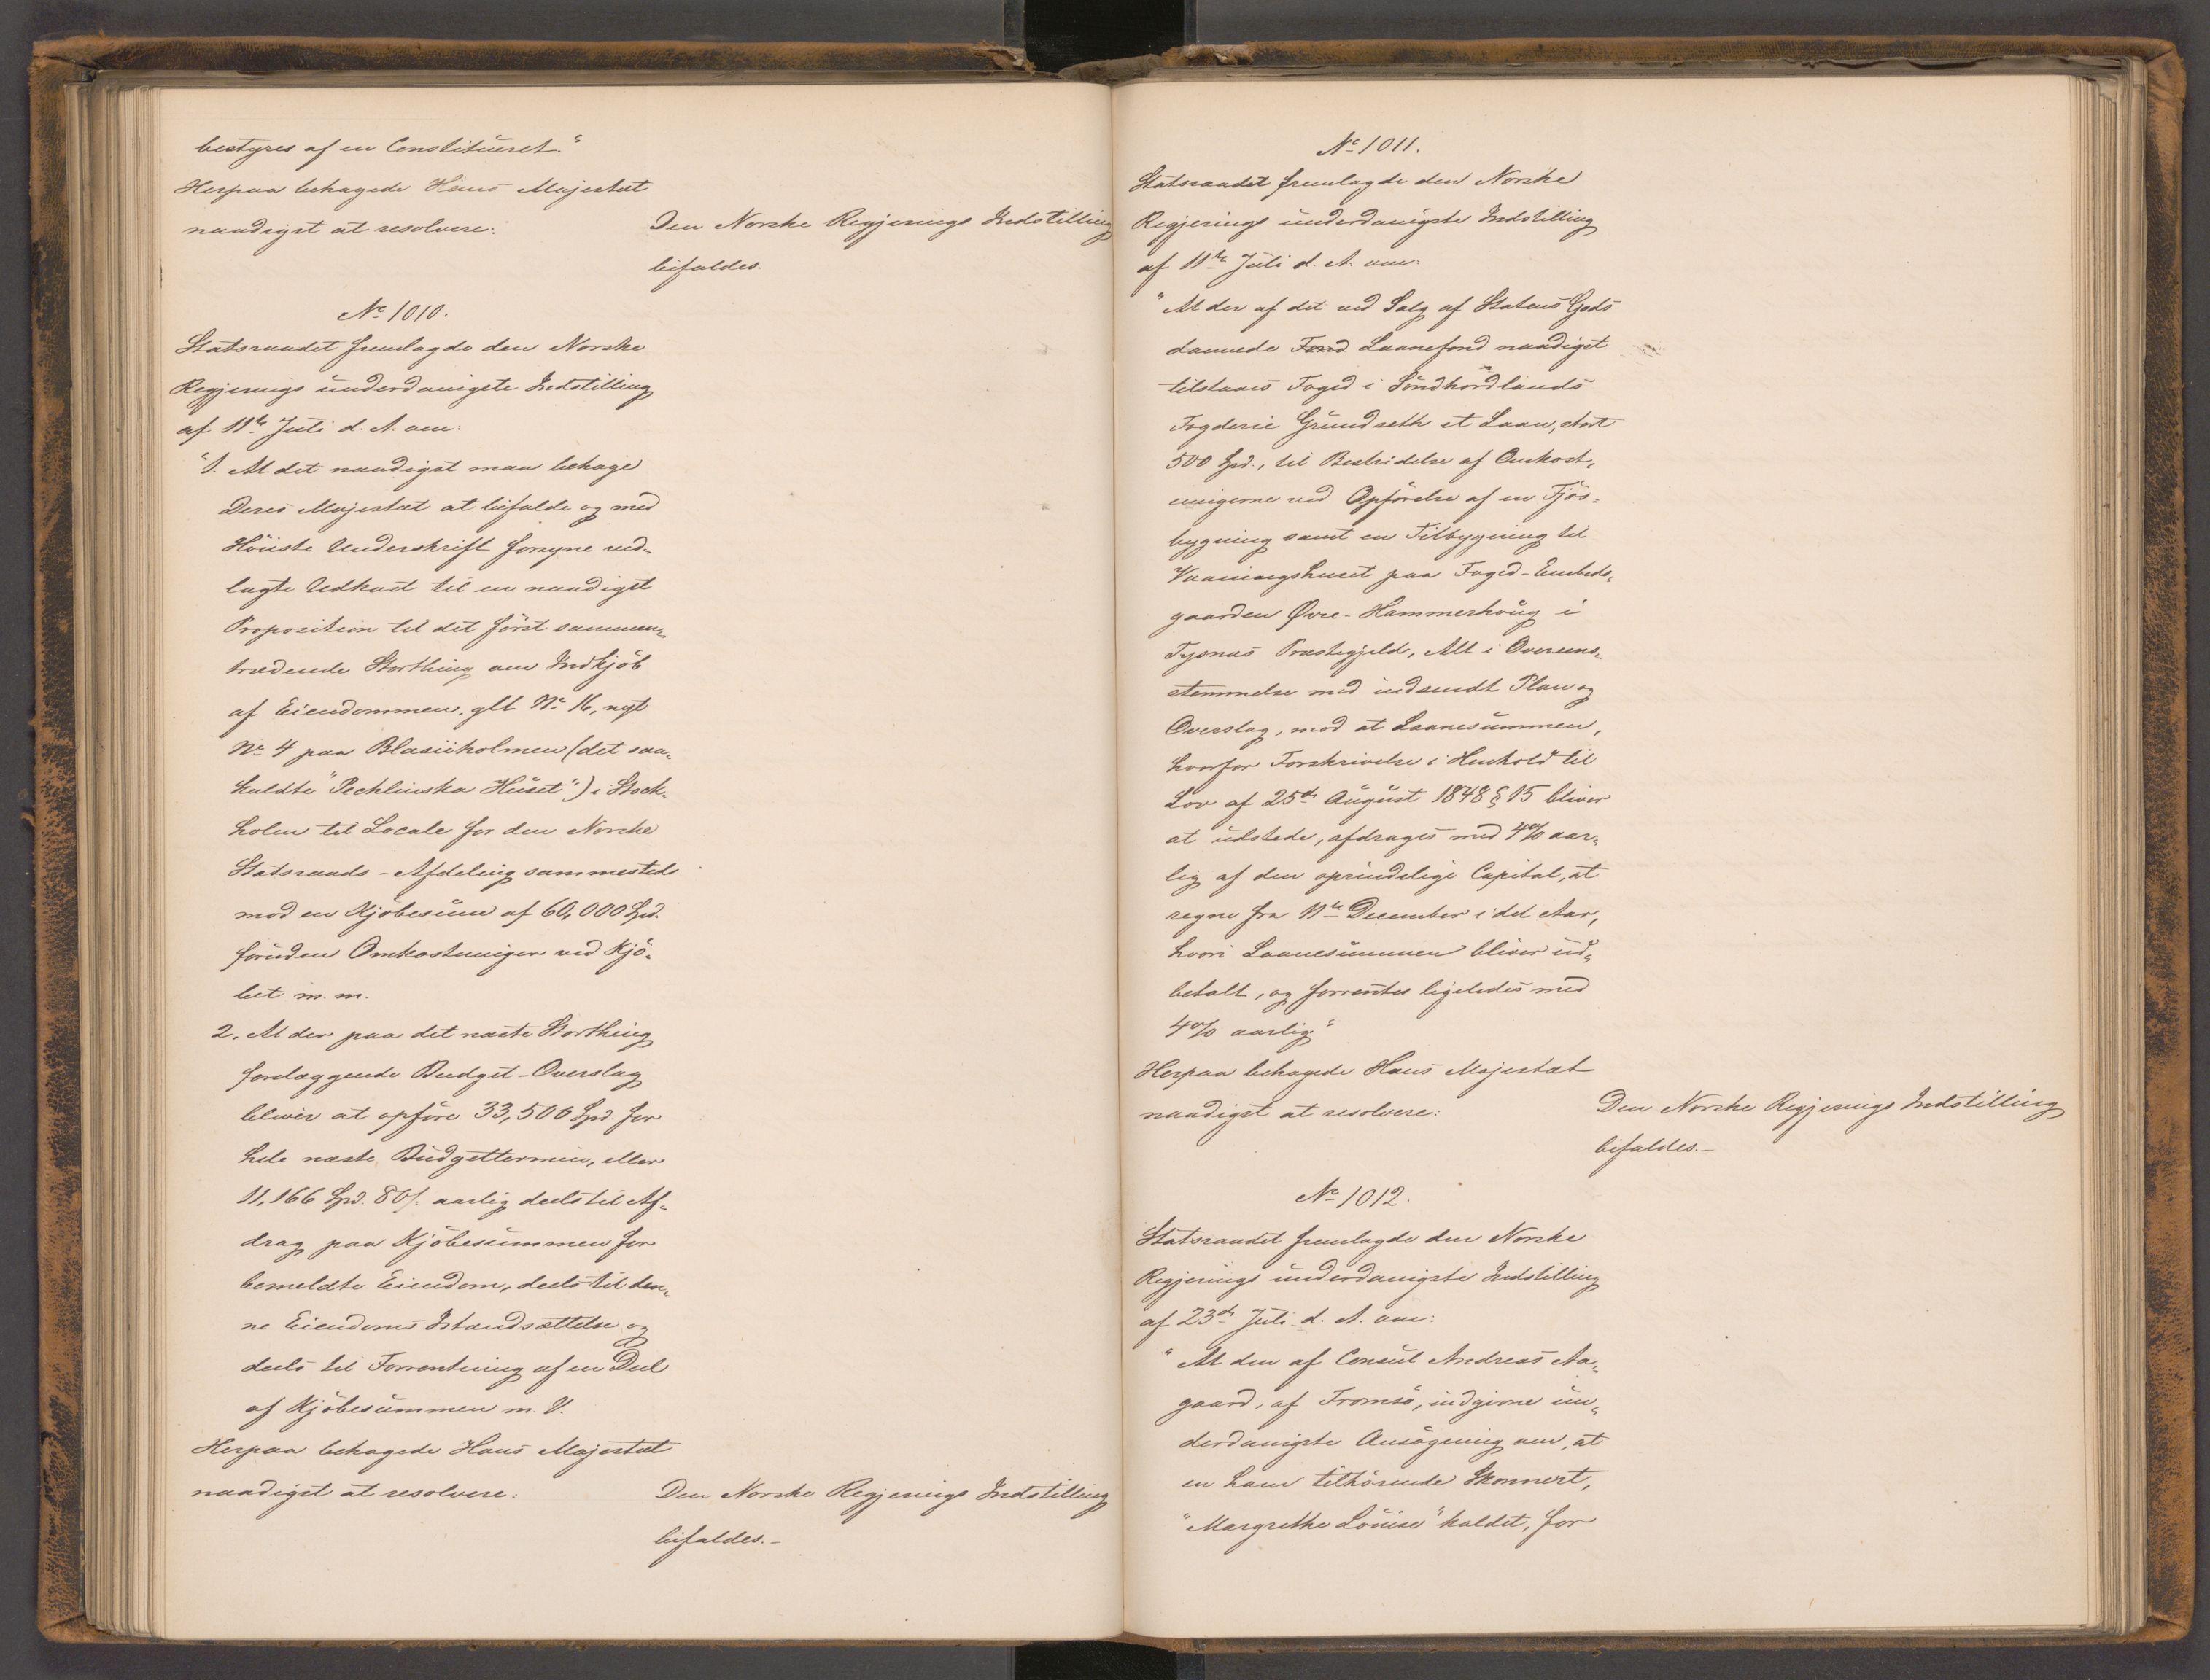 bestyres af en Constitueret."
Herpaa behagede Hans Majestæt
naadigst at resolvere:
Den Norske Regjerings Indstilling
bifaldes.
No 1010.
Statsraadet fremlagde den Norske
Regjerings underdanigste Indstilling
af 11te Juli d. A. om:
"1. At det naadigst maa behage
Deres Majestæt at bifalde og med
Høieste Underskrift forsyne ved„
lagte Udkast til en naadigst
Proposition til det først sammen„
trædende Storthing om Indkjøb
af Eiendommen, glt No 16, nyt
No 4 paa Blasiiholmen (det saa„
kaldte "Pechlinska Huset") i Stock„
holm til Locale for den Norske
Statsraads-Afdeling sammesteds
mod en Kjøbesum af 60,000 Spd.
foruden Omkostninger ved Kjø„
bet m. m.
2. At der paa det næste Storthing
forelæggende Budget-Overslag
bliver at opføre 33,500 Spd. for
hele næste Budgettermin, eller
11,166 Spd. 80 s. aarlig deels til Af„
drag paa Kjøbesummen for
bemeldte Eiendom, deels til den„
ne Eiendoms Istandsættelse og
deels til Forrentning af en Deel
af Kjøbesummen m. V.
Herpaa behagede Hans Majestæt
naadigst at resolvere:
Den Norske Regjerings Indstilling
bifaldes.-
No 1011.
Statsraadet fremlagde den Norske
Regjerings underdanigste Indstilling
af 11te Juli d. A. om:
"At der af det ved Salg af Statens Gods
dannede Fond Laanefond naadigst
tilstaaes Foged i Søndhordlands
Fogderie Grundseth et Laan, stort
500 Spd., til Bestridelse af Omkost„
ningerne ved Opførelse af en Fjøs„
bygning samt en Tilbygning til
Vaaningshuset paa Foged-Embeds„
gaarden Øvre-Hammerhoug i
Tysnæs Præstegjeld, Alt i Overeens„
stemmelse med indsendt Plan og
Overslag, mod at Laanesummen,
hvorfor Forskrivelse i Henhold til
Lov af 25de August 1848 § 15 bliver
at udstede, afdrages med 4% aar„
lig af den oprindelige Capital, at
regne fra 11te December i det Aar,
hvori Laanesummen bliver ud„
betalt, og forrentes ligeledes med
4% aarlig."
Herpaa behagede Hans Majestæt
naadigst at resolvere:
Den Norske Regjerings Indstilling
bifaldes.-
No 1012.
Statsraadet fremlagde den Norske
Regjerings underdanigste Indstilling
af 23de Juli d. A. om:
"At den af Consul Andreas Aa„
gaard, af Tromsø, indgivne un„
derdanigste Ansøgning om, at
en ham tilhørende Skonnert,
"Margrethe Louise" kaldet, for